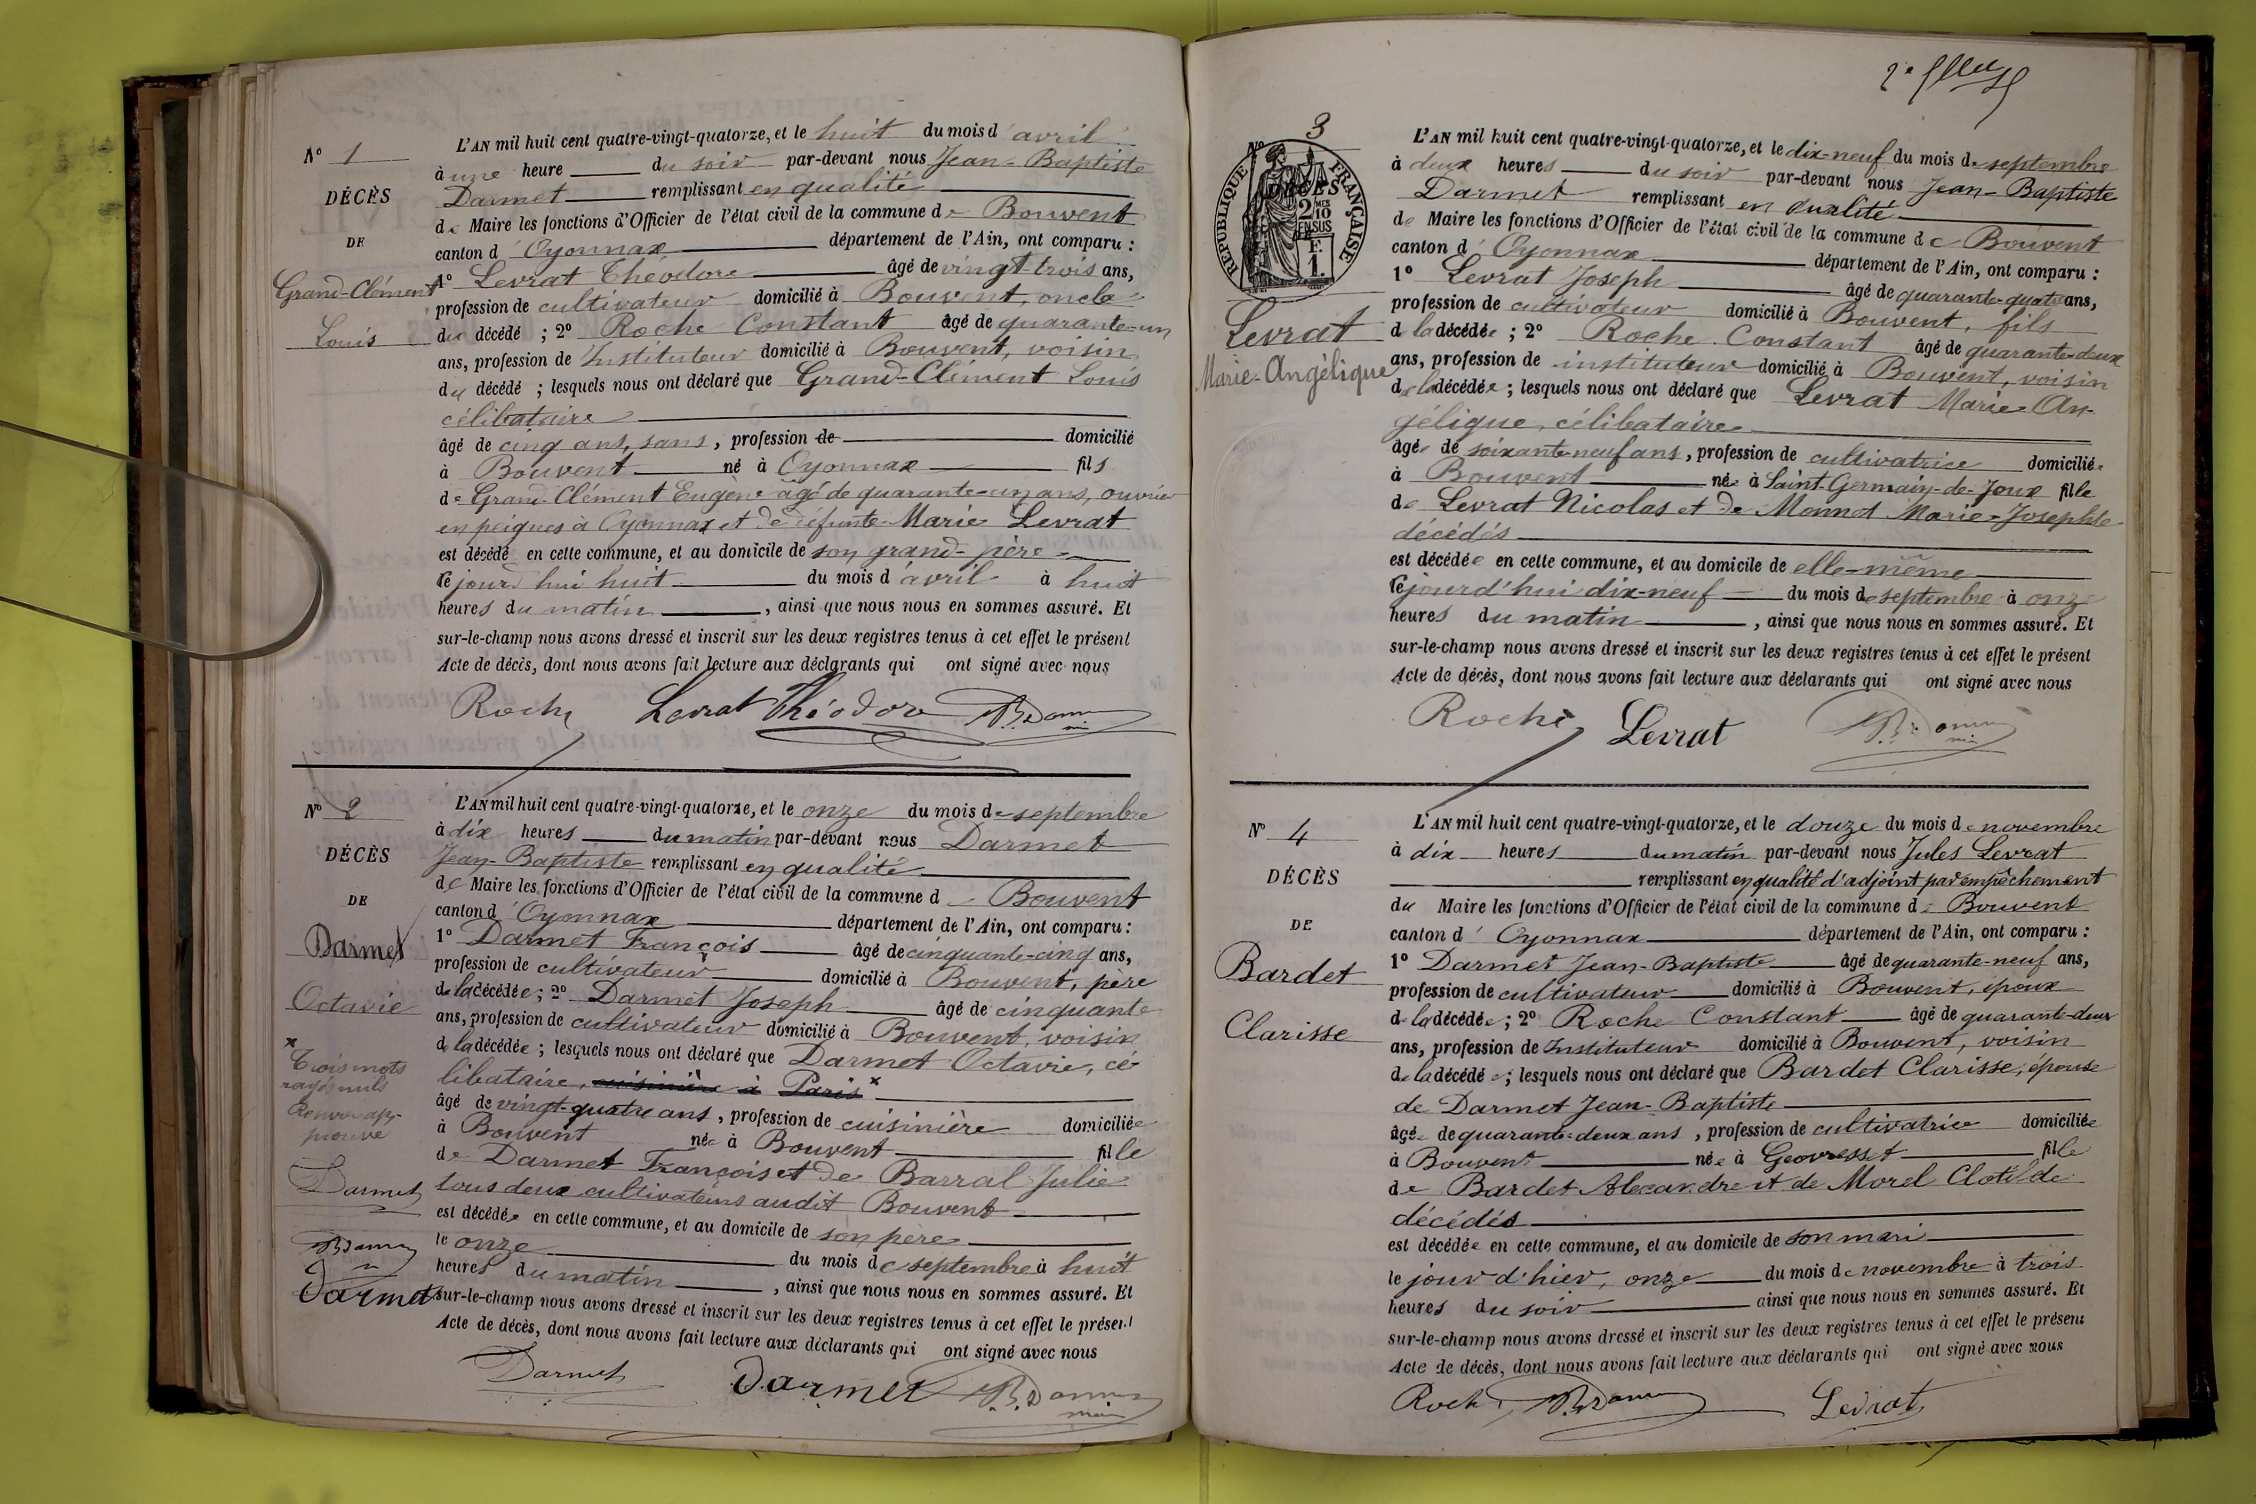 Nº 1
DÉCÈS
DE
Grand-Clément
Louis
L'AN mil huit cent quatre-vingt-quatorze, et le huit du mois d'avril
à une heure du soir par-devant nous Jean-Baptiste
Darmet remplissant en qualité
de Maire les fonctions d'Officier de l'état civil de la commune de Bouvent
canton d'Oyonnax département de l'Ain, ont comparu :
1º Levrat Théodore âgé de vingt-trois ans,
profession de cultivateur domicilié à Bouvent, oncle
du décédé ; 2º Roche Constant âgé de quarante-un
ans, profession de Instituteur domicilié à Bouvent, voisin
du décédé ; lesquels nous ont déclaré que Grand-Clément Louis
célibataire
âgé de cinq ans, sans, profession de domicilié
à Bouvent né à Oyonnax fils
de Grand-Clément Eugène âgé de quarante-cinq ans, ouvrier
en peignes à Oyonnax et de défunte Marie Levrat
est décédé en cette commune, et au domicile de son grand-père
ce jourd'hui huit du mois d'avril à huit
heures du matin, ainsi que nous nous en sommes assuré. Et
sur-le-champ nous avons dressé et inscrit sur les deux registres tenus à cet effet le présent
Acte de décès, dont nous avons fait lecture aux déclarants qui ont signé avec nous
Roche Levrat Théodore
Nº 2
DÉCÈS
DE
Darmet
Octavie
x
Trois mots
rayés nuls
Renvoi ap-
prouvé
Darmet
Darmet
L'AN mil huit cent quatre-vingt-quatorze, et le onze du mois de septembre
à dix heures du matin par-devant nous Darmet
Jean-Baptiste remplissant en qualité
de Maire les fonctions d'Officier de l'état civil de la commune de Bouvent
canton d'Oyonnax département de l'Ain, ont comparu :
1º Darmet François âgé de cinquante-cinq ans,
profession de cultivateur domicilié à Bouvent, père
de la décédée ; 2º Darmet Joseph âgé de cinquante
ans, profession de cultivateur domicilié à Bouvent, voisin
de la décédée ; lesquels nous ont déclaré que Darmet Octavie, cé-
libataire, cuisinière à Paris x
âgé de vingt-quatre ans, profession de cuisinière domiciliée
à Bouvent née à Bouvent fille
de Darmet François et de Barral Julie
tous deux cultivateurs audit Bouvent
est décédée en cette commune, et au domicile de son père
le onze du mois de septembre à huit
heures du matin, ainsi que nous nous en sommes assuré. Et
sur-le-champ nous avons dressé et inscrit sur les deux registres tenus à cet effet le présent
Acte de décès, dont nous avons fait lecture aux déclarants qui ont signé avec nous
Darmet Darmet
Nº 3
RÉPUBLIQUE FRANÇAISE
2/10 EN SUS
F. 1.
Levrat
Marie-Angélique
L'AN mil huit cent quatre-vingt-quatorze, et le dix-neuf du mois de septembre
à deux heures du soir par-devant nous Jean-Baptiste
Darmet remplissant en qualité
de Maire les fonctions d'Officier de l'état civil de la commune de Bouvent
canton d'Oyonnax département de l'Ain, ont comparu :
1º Levrat Joseph âgé de quarante-quatre ans,
profession de cultivateur domicilié à Bouvent, fils
de la décédée ; 2º Roche Constant âgé de quarante-deux
ans, profession de instituteur domicilié à Bouvent, voisin
de la décédée ; lesquels nous ont déclaré que Levrat Marie-An-
gélique, célibataire
âgée de soixante-neuf ans, profession de cultivatrice domiciliée
à Bouvent née à Saint-Germain-de-Joux fille
de Levrat Nicolas et de Monnot Marie-Josephte
décédés
est décédée en cette commune, et au domicile de elle-même
ce jourd'hui dix-neuf du mois de septembre à onze
heures du matin, ainsi que nous nous en sommes assuré. Et
sur-le-champ nous avons dressé et inscrit sur les deux registres tenus à cet effet le présent
Acte de décès, dont nous avons fait lecture aux déclarants qui ont signé avec nous
Roche Levrat
Nº 4
DÉCÈS
DE
Bardet
Clarisse
L'AN mil huit cent quatre-vingt-quatorze, et le douze du mois de novembre
à dix heures du matin par-devant nous Jules Levrat
remplissant en qualité d'adjoint par empêchement
du Maire les fonctions d'Officier de l'état civil de la commune de Bouvent
canton d'Oyonnax département de l'Ain, ont comparu :
1º Darmet Jean-Baptiste âgé de quarante-neuf ans,
profession de cultivateur domicilié à Bouvent, époux
de la décédée ; 2º Roche Constant âgé de quarante-deux
ans, profession de Instituteur domicilié à Bouvent, voisin
de la décédée ; lesquels nous ont déclaré que Bardet Clarisse, épouse
de Darmet Jean-Baptiste
âgée de quarante-deux ans, profession de cultivatrice domiciliée
à Bouvent née à Geovresset fille
de Bardet Alexandre et de Morel Clotilde
décédés
est décédée en cette commune, et au domicile de son mari
le jour d'hier, onze du mois de novembre à trois
heures du soir ainsi que nous nous en sommes assuré. Et
sur-le-champ nous avons dressé et inscrit sur les deux registres tenus à cet effet le présent
Acte de décès, dont nous avons fait lecture aux déclarants qui ont signé avec nous
Roche Levrat